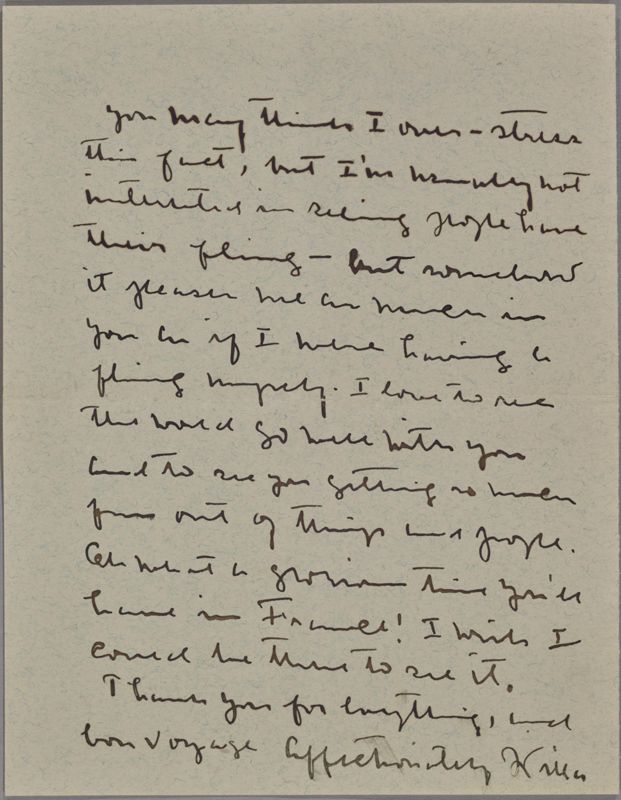 you may think I over-stress
this fact, but I'm usually not
interested in seeing people have
their fling — but somehow
it pleases me as much in
you as if I were having a
fling myself. I love to see
the world go well with you
and to see you getting so much
fun out of things and people.
Oh what a glorious time you'll
have in France! I wish I
could be there to see it.
Thank you for everything, and
bon voyage Affectionately Willa